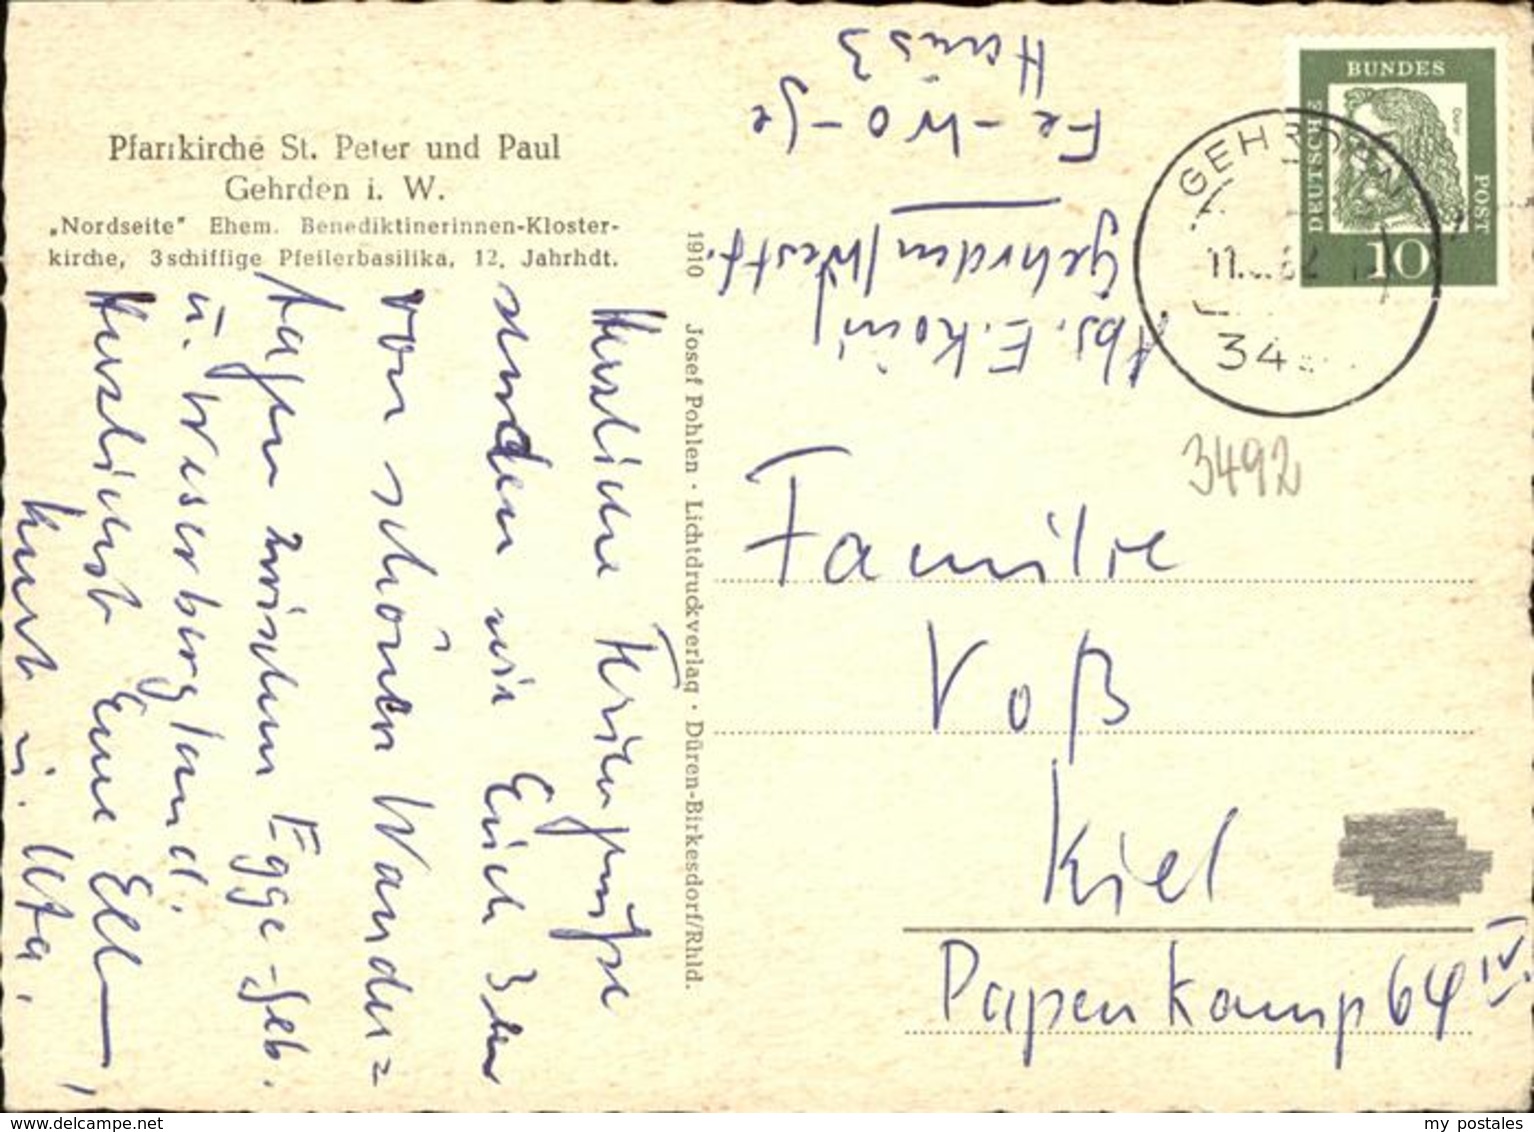 Pfarrkirche St. Peter und Paul
Gehrden i. W.
„Nordseite" Ehem. Benediktinerinnen-Kloster-
kirche, 3schiffige Pfeilerbasilika, 12. Jahrhdt.
Herzliche Feriengrüße
senden wir Euch 3
von schönen Wander=
tagen zwischen Egge-Geb.
u. Weserbergland.
Herzlichst Eure Ella,
Kurt u. Uta.
1910 Josef Pohlen · Lichtdruckverlag · Düren-Birkesdorf/Rhld.
Abs. E.
Gehrden/Westf.
Fe-Wo-Ge
Haus 3
DEUTSCHE
BUNDES
POST
Dürer
10
GEHRDEN
11. 62
34
3492
Familie
Voß
Kiel
Papenkamp 64 IV.
www.delcampe.net
my_postales